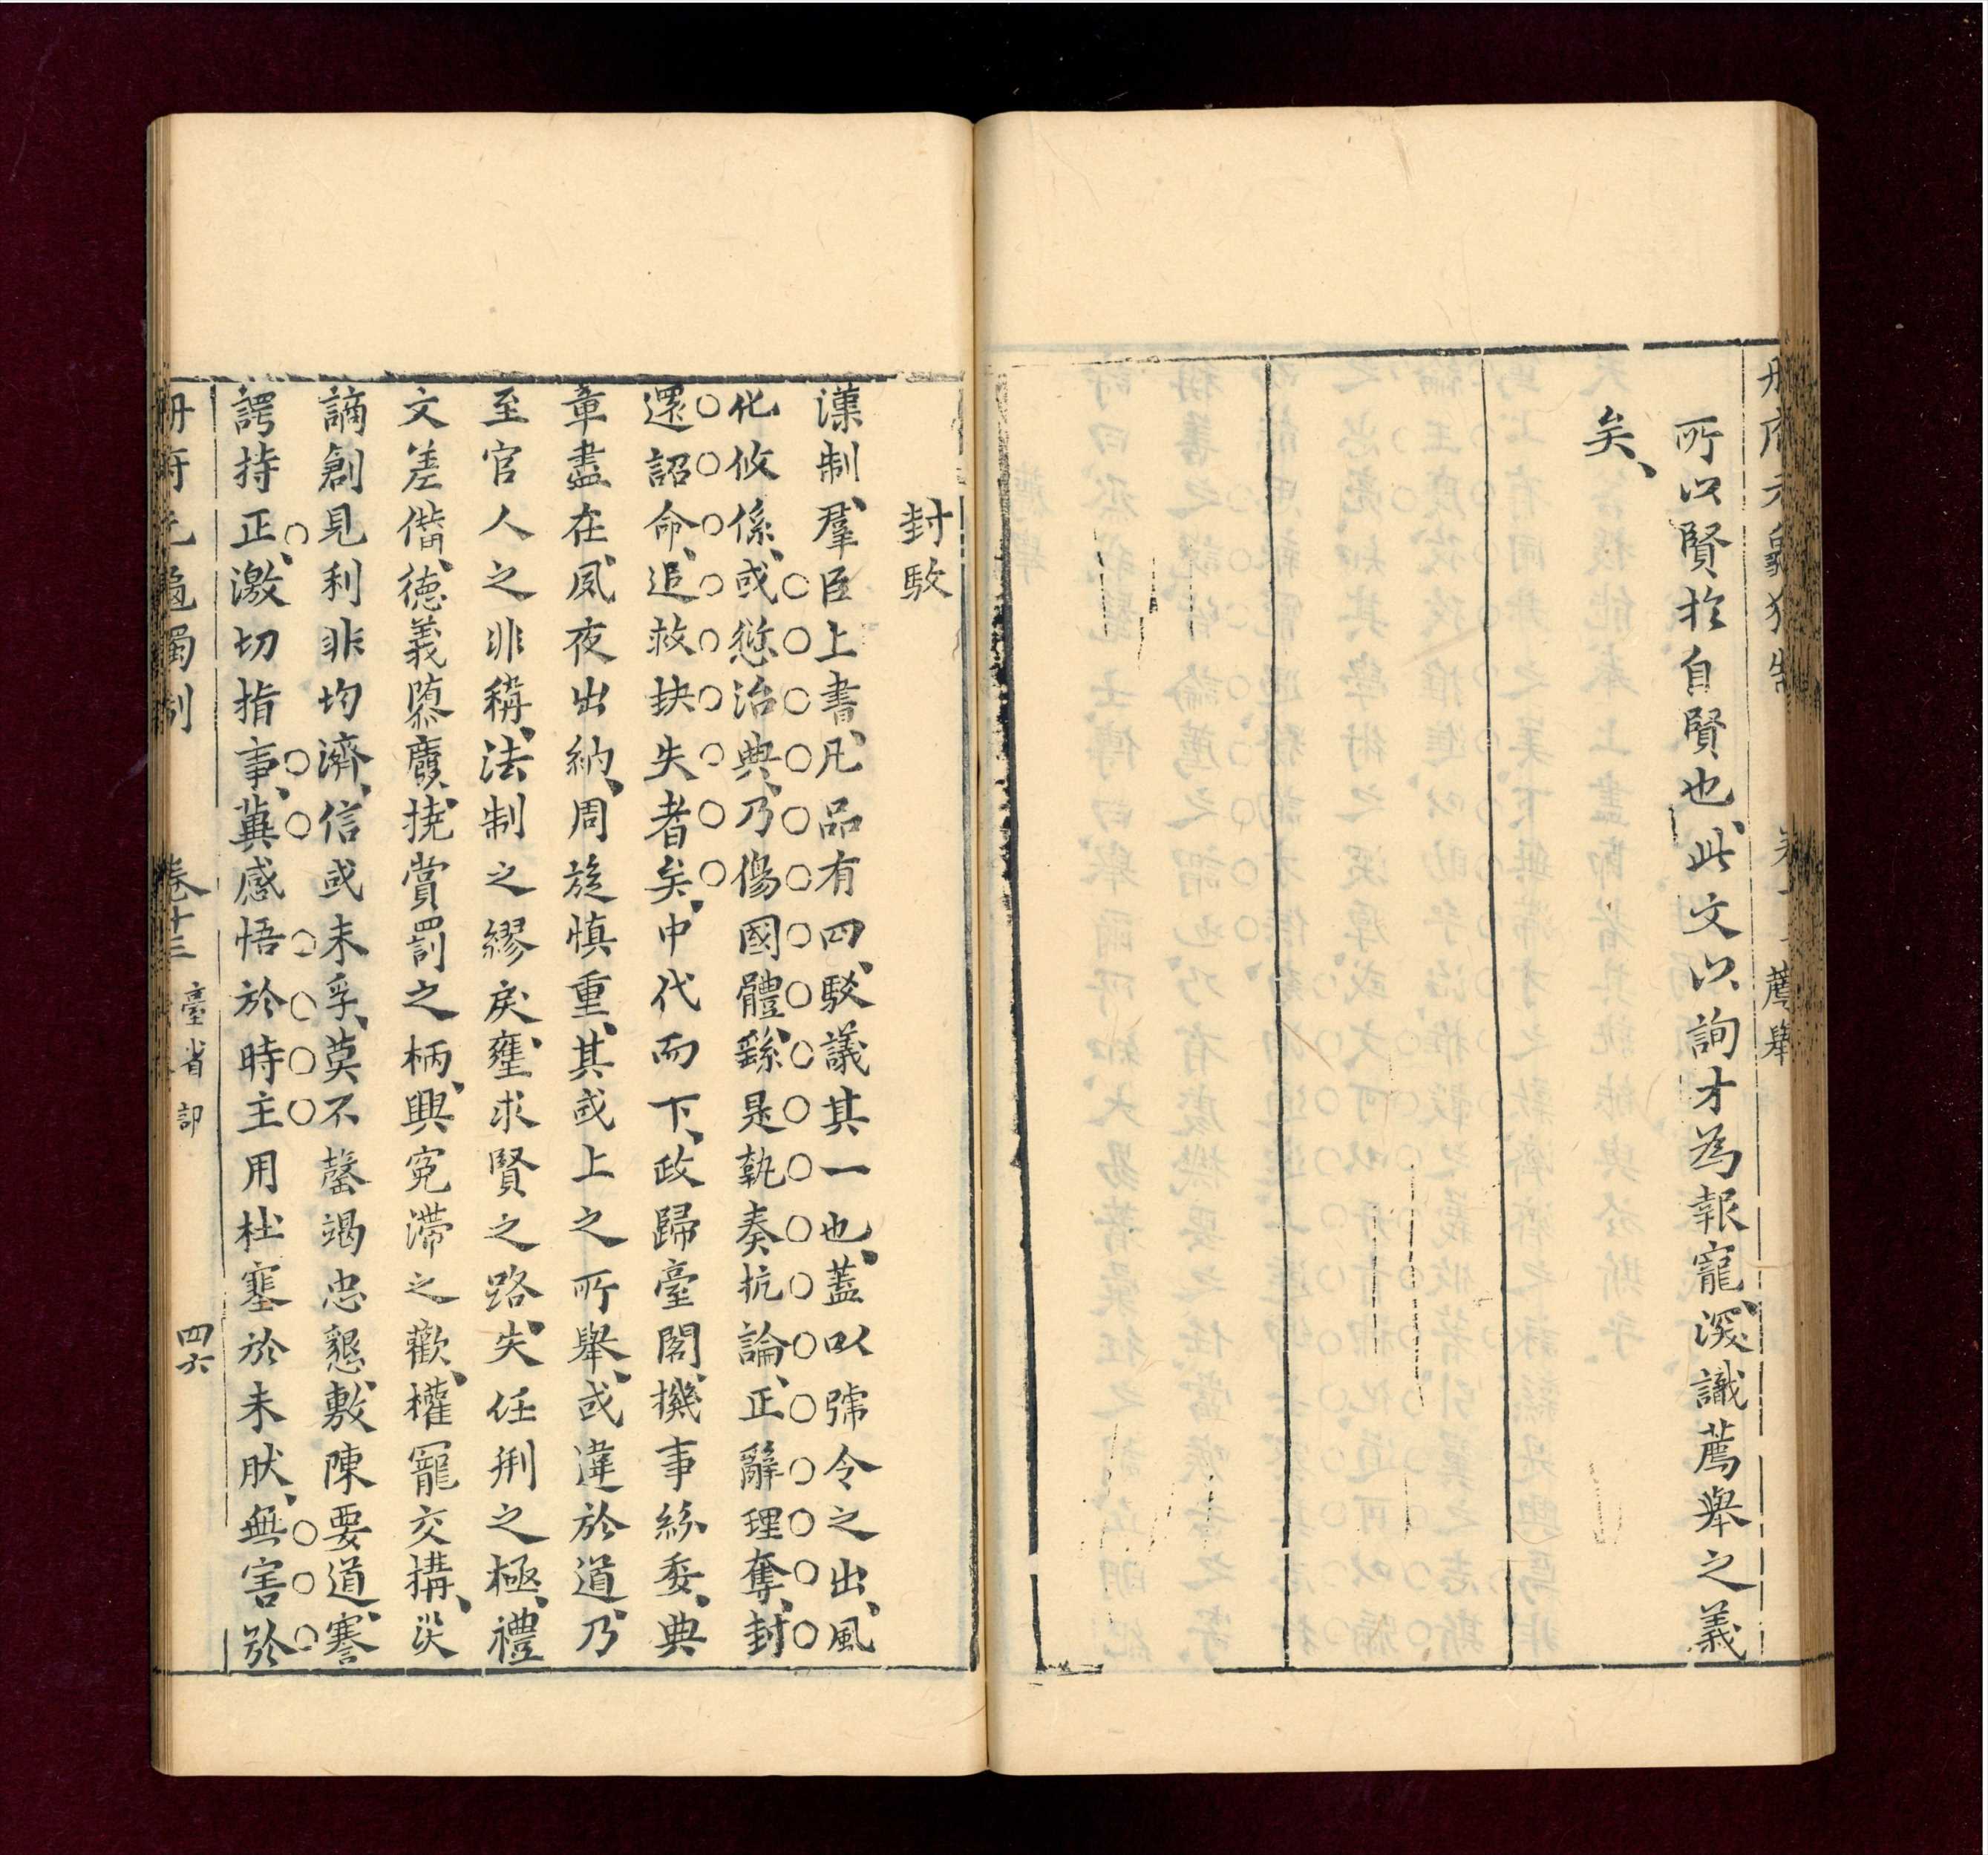 所以賢於自賢也此文以詢才為報寵深識薦舉之義
矣
薦舉
封駮
漢制羣臣上書凡品有四駮議其一也蓋以號令之出風
化攸係或愆治典乃傷國體繇是執奏抗論正辭理奪封
還詔命追救抉失者矣中代而下政歸臺閣機事絲委典
章盡在夙夜出納周旋慎重其或上之所舉或違於道乃
至官人之非稱法制之繆戾壅求賢之路失任刑之極禮
文差僭德義隳廢撓賞罰之柄興寃滯之歡權寵交搆災
謫創見利非均濟信或未孚莫不罄竭忠懇敷陳要道謇
諤持正激切指事冀感悟於時主用杜塞於未肰無害於
冊府元龜獨制 卷十三 臺省部 四六